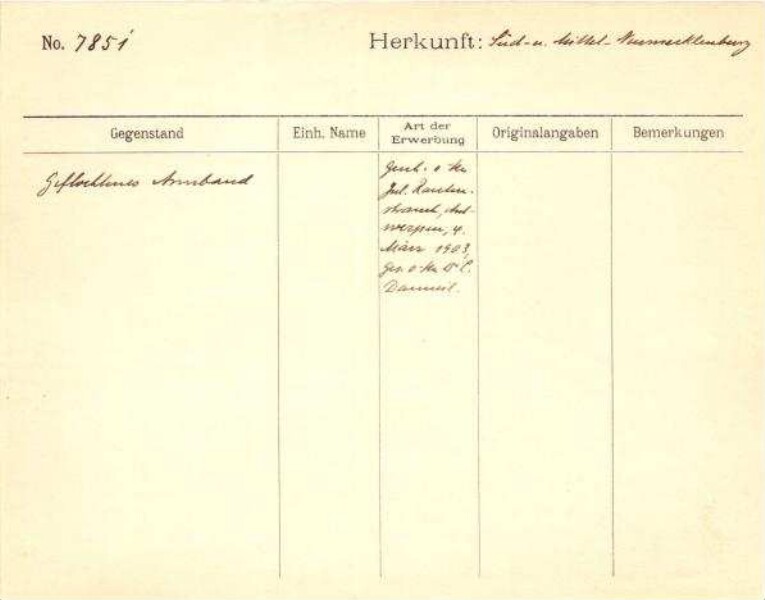 No. 7851
Herkunft: Süd- u. Mittel-Neumecklenburg
Gegenstand
Einh. Name
Art der Erwerbung
Originalangaben
Bemerkungen
Geflochtenes Armband
Gesch. v. Hn
Jul. Rauten-
strauch, Ant-
werpen, 4.
März 1903,
ges. v. Hn Dr C.
Danneil.